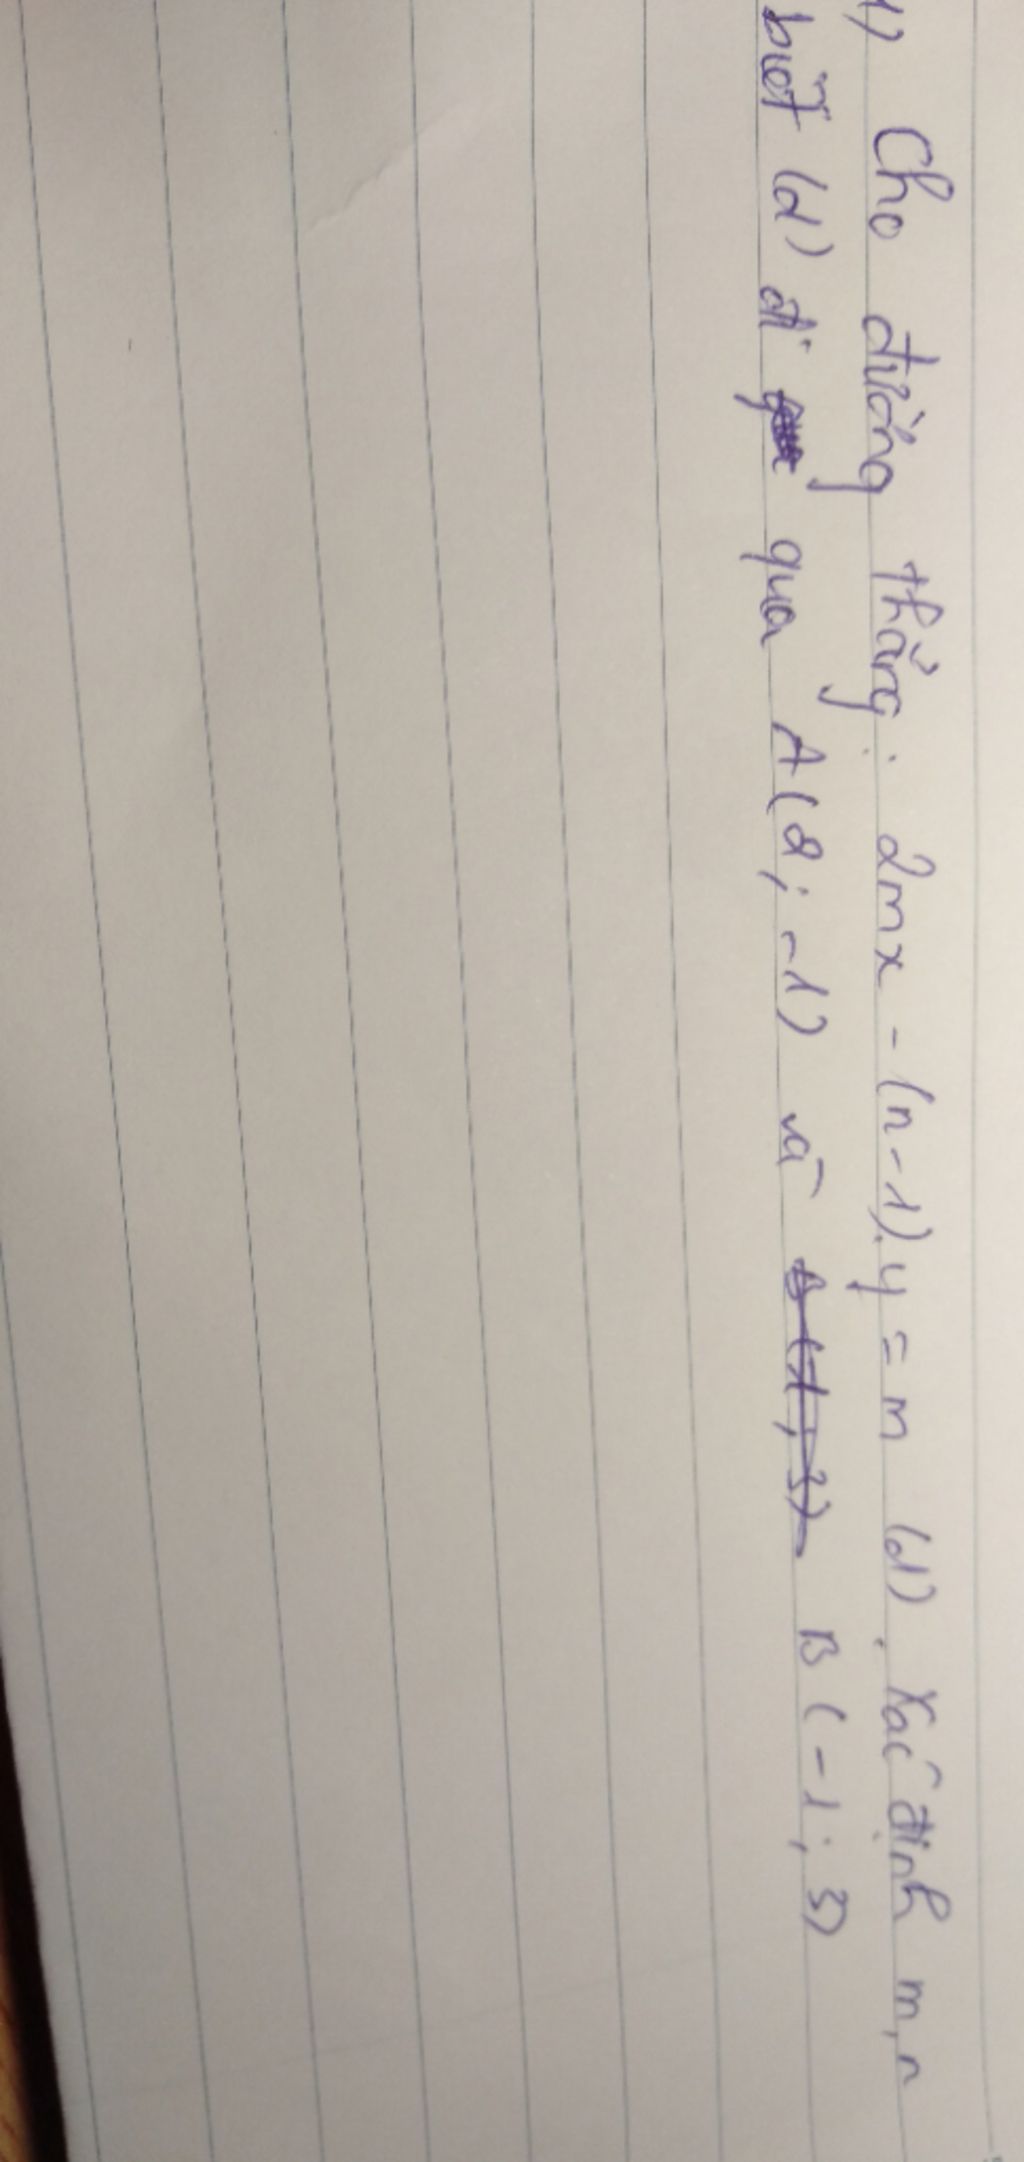 1) Cho đường thẳng: 2mx - (n-1).y = m (d). Xác định m,n
biết (d) đi qua A(2; -1) và B(-1; 3)